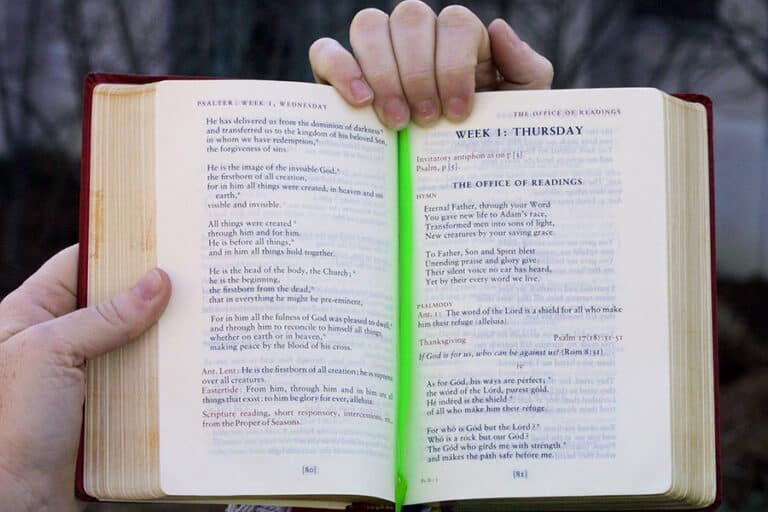 PSALTER: WEEK 1, WEDNESDAY
He has delivered us from the dominion of darkness*
and transferred us to the kingdom of his beloved Son,
in whom we have redemption,*
the forgiveness of sins.
He is the image of the invisible God,*
the firstborn of all creation,
for in him all things were created, in heaven and on
earth,*
visible and invisible.
All things were created*
through him and for him.
He is before all things,*
and in him all things hold together.
He is the head of the body, the Church;*
he is the beginning,
the firstborn from the dead,*
that in everything he might be pre-eminent,
For in him all the fulness of God was pleased to dwell,*
and through him to reconcile to himself all things,
whether on earth or in heaven,*
making peace by the blood of his cross.
Ant. Lent: He is the firstborn of all creation; he is supreme
over all creatures.
Eastertide: From him, through him and in him are all
things that exist: to him be glory for ever, alleluia.
Scripture reading, short responsory, intercessions, etc.,
from the Proper of Seasons.
[80]
THE OFFICE OF READINGS
WEEK 1: THURSDAY
Invitatory antiphon as on p [3].
Psalm, p [5].
THE OFFICE OF READINGS
HYMN
Eternal Father, through your Word
You gave new life to Adam's race,
Transformed men into sons of light,
New creatures by your saving grace.
To Father, Son and Spirit blest
Unending praise and glory give:
Their silent voice no ear has heard,
Yet by their every word we live.
PSALMODY
Ant. 1: The word of the Lord is a shield for all who make
him their refuge (alleluia).
Thanksgiving Psalm 17(18):31-51
If God is for us, who can be against us? (Rom 8:31).
IV
As for God, his ways are perfect;*
the word of the Lord, purest gold.
He indeed is the shield*
of all who make him their refuge.
For who is God but the Lord?*
Who is a rock but our God?
The God who girds me with strength*
and makes the path safe before me.
[81]